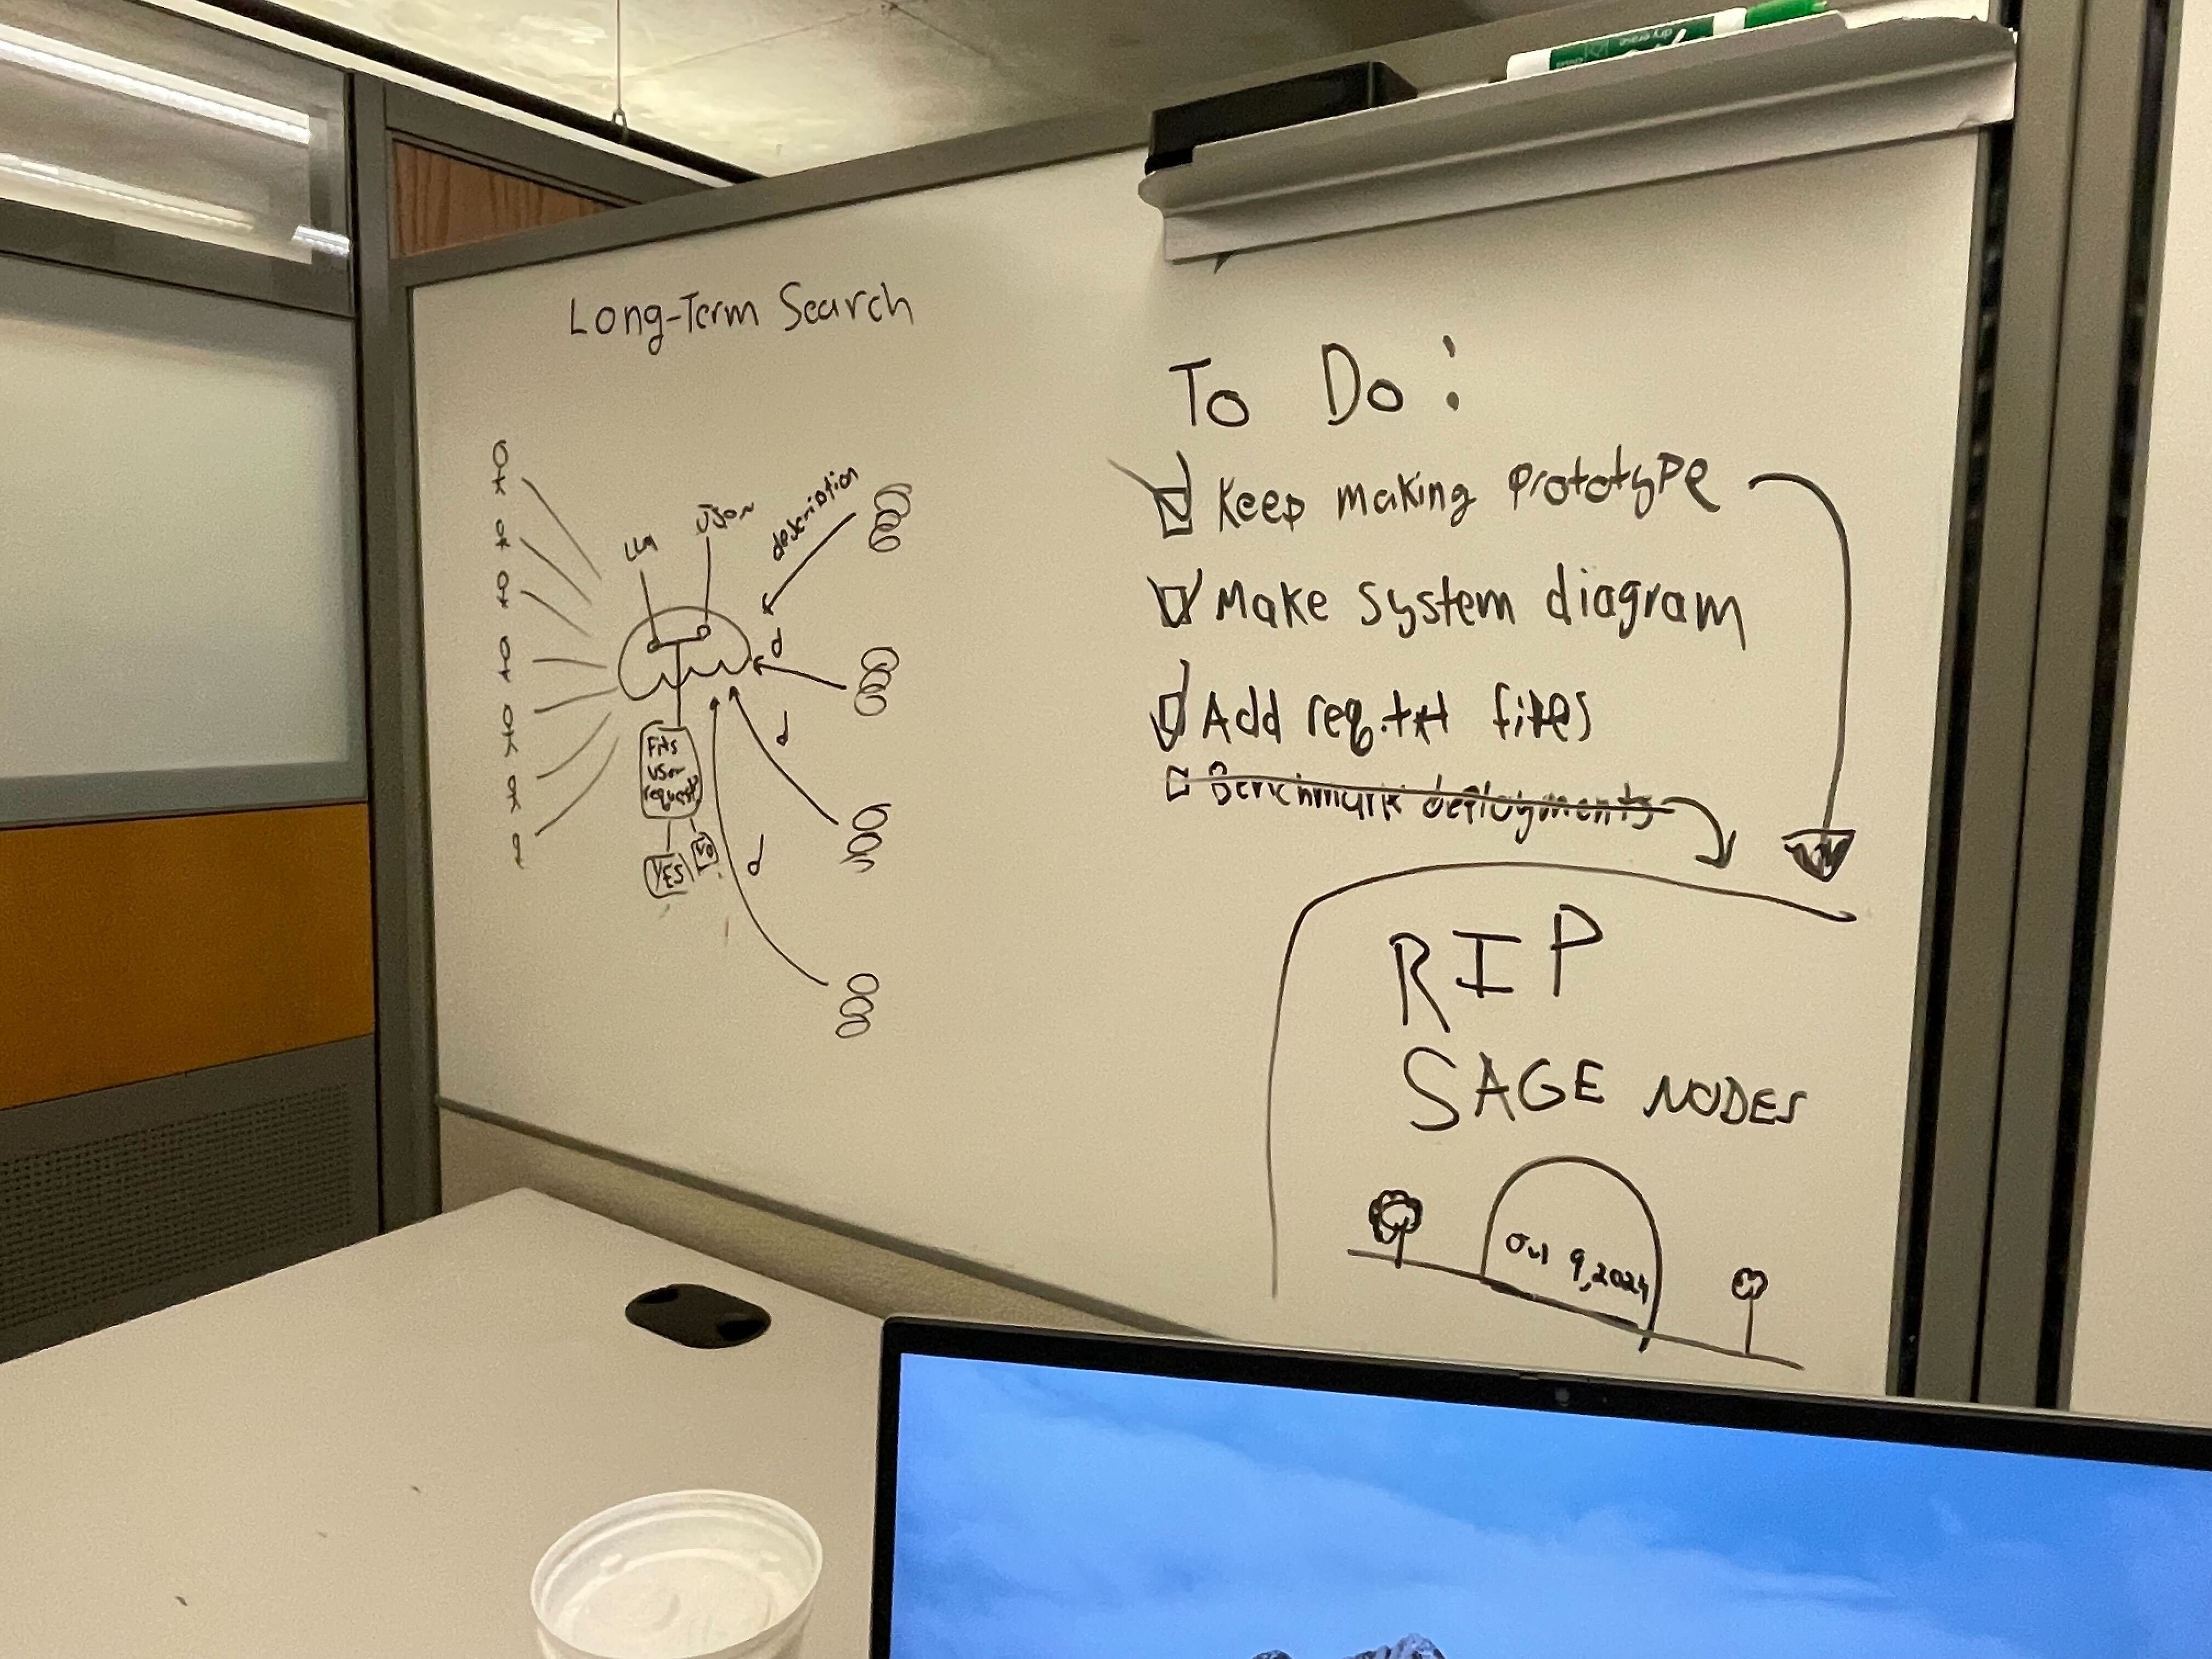 Long-Term Search
LLM
description
d
d
d
Fits
user
request?
YES
No
To Do:
Keep making prototype
Make system diagram
Add req.txt files
Benchmark deployments
RIP
SAGE NODES
9, 2024
dry erase